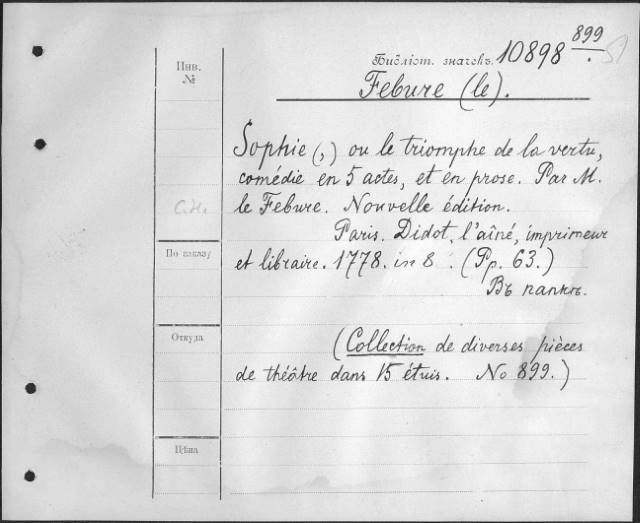 Библіот. значекъ. 10898 899
51
Febure (le).
Инв.
№
Sophie (,) ou le triomphe de la vertu,
comédie en 5 actes, et en prose. Par M.
С.Н.
le Febure. Nouvelle édition.
Paris. Didot, l'aîné, imprimeur
По заказу
et libraire. 1778. in 8°. (Pp. 63.)
Въ папкѣ.
Откуда
(Collection de diverses pièces
de théôtre dans 15 étuis. No 899.)
Цѣна